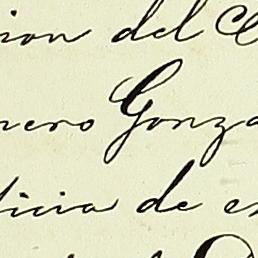 ion del C
nero Gonza
ticia de es